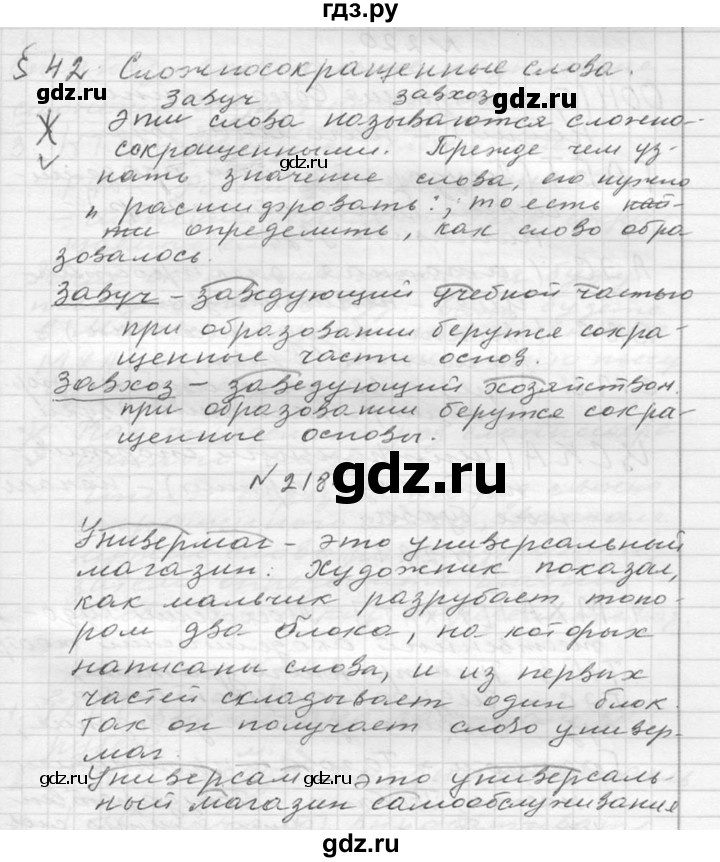 гдз.ру
§ 42. Сложносокращенные слова.
Завуч завхоз
Эти слова называются сложно-
сокращенными. Прежде чем уз-
нать значение слова, его нужно
„расшифровать", то есть най-
ти определить, как слово обра
зовалось.
Завуч – заведующий учебной частью
при образовании берутся сокра-
щенные части основ.
Завхоз – заведующий хозяйством.
при образовании берутся сокра-
щенные основы.
№ 218
Универмаг – это универсальный
магазин. Художник показал,
как мальчик разрубает топо-
ром два блока, на которых
написаны слова, и из первых
частей складывает один блок.
Так он получает слово универ-
маг.
Универсам – это универсаль-
ный магазин самообслуживания
gdz.ru
gdz.ru
gdz.ru
gdz.ru
gdz.ru
gdz.ru
gdz.ru